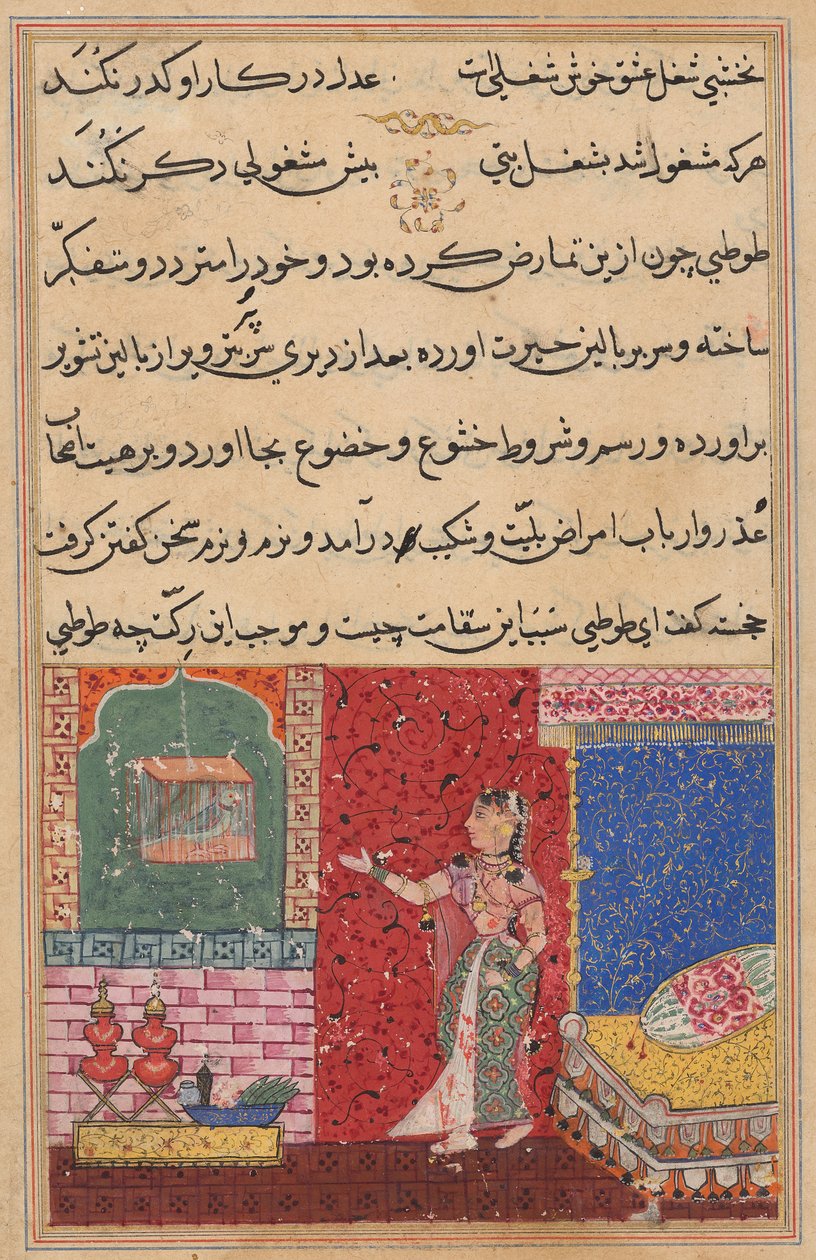 نخشبی شغل عشق خوش شغلی است . عدل در کار او کدر نکنند
هرکه مشغول شد بشغل بتی بیش مشغولی دکر نکنند
طوطی چون ازین تمارض کرده بود و خود را متردد و متفکر
ساخته و سر بر بالین حیرت اورده بعد از دیری سر پر تزویر از بالین تشویر
براورده و رسم و شروط خشوع و خضوع بجا اورد و بر هیت اصحاب
عذر وارباب امراض بلیت و شکیب درآمد و نرم و نرم سخن کفتن کرفت
خجسته کفت ای طوطی سبب این سقامت چیست و موجب این رکت چه طوطی